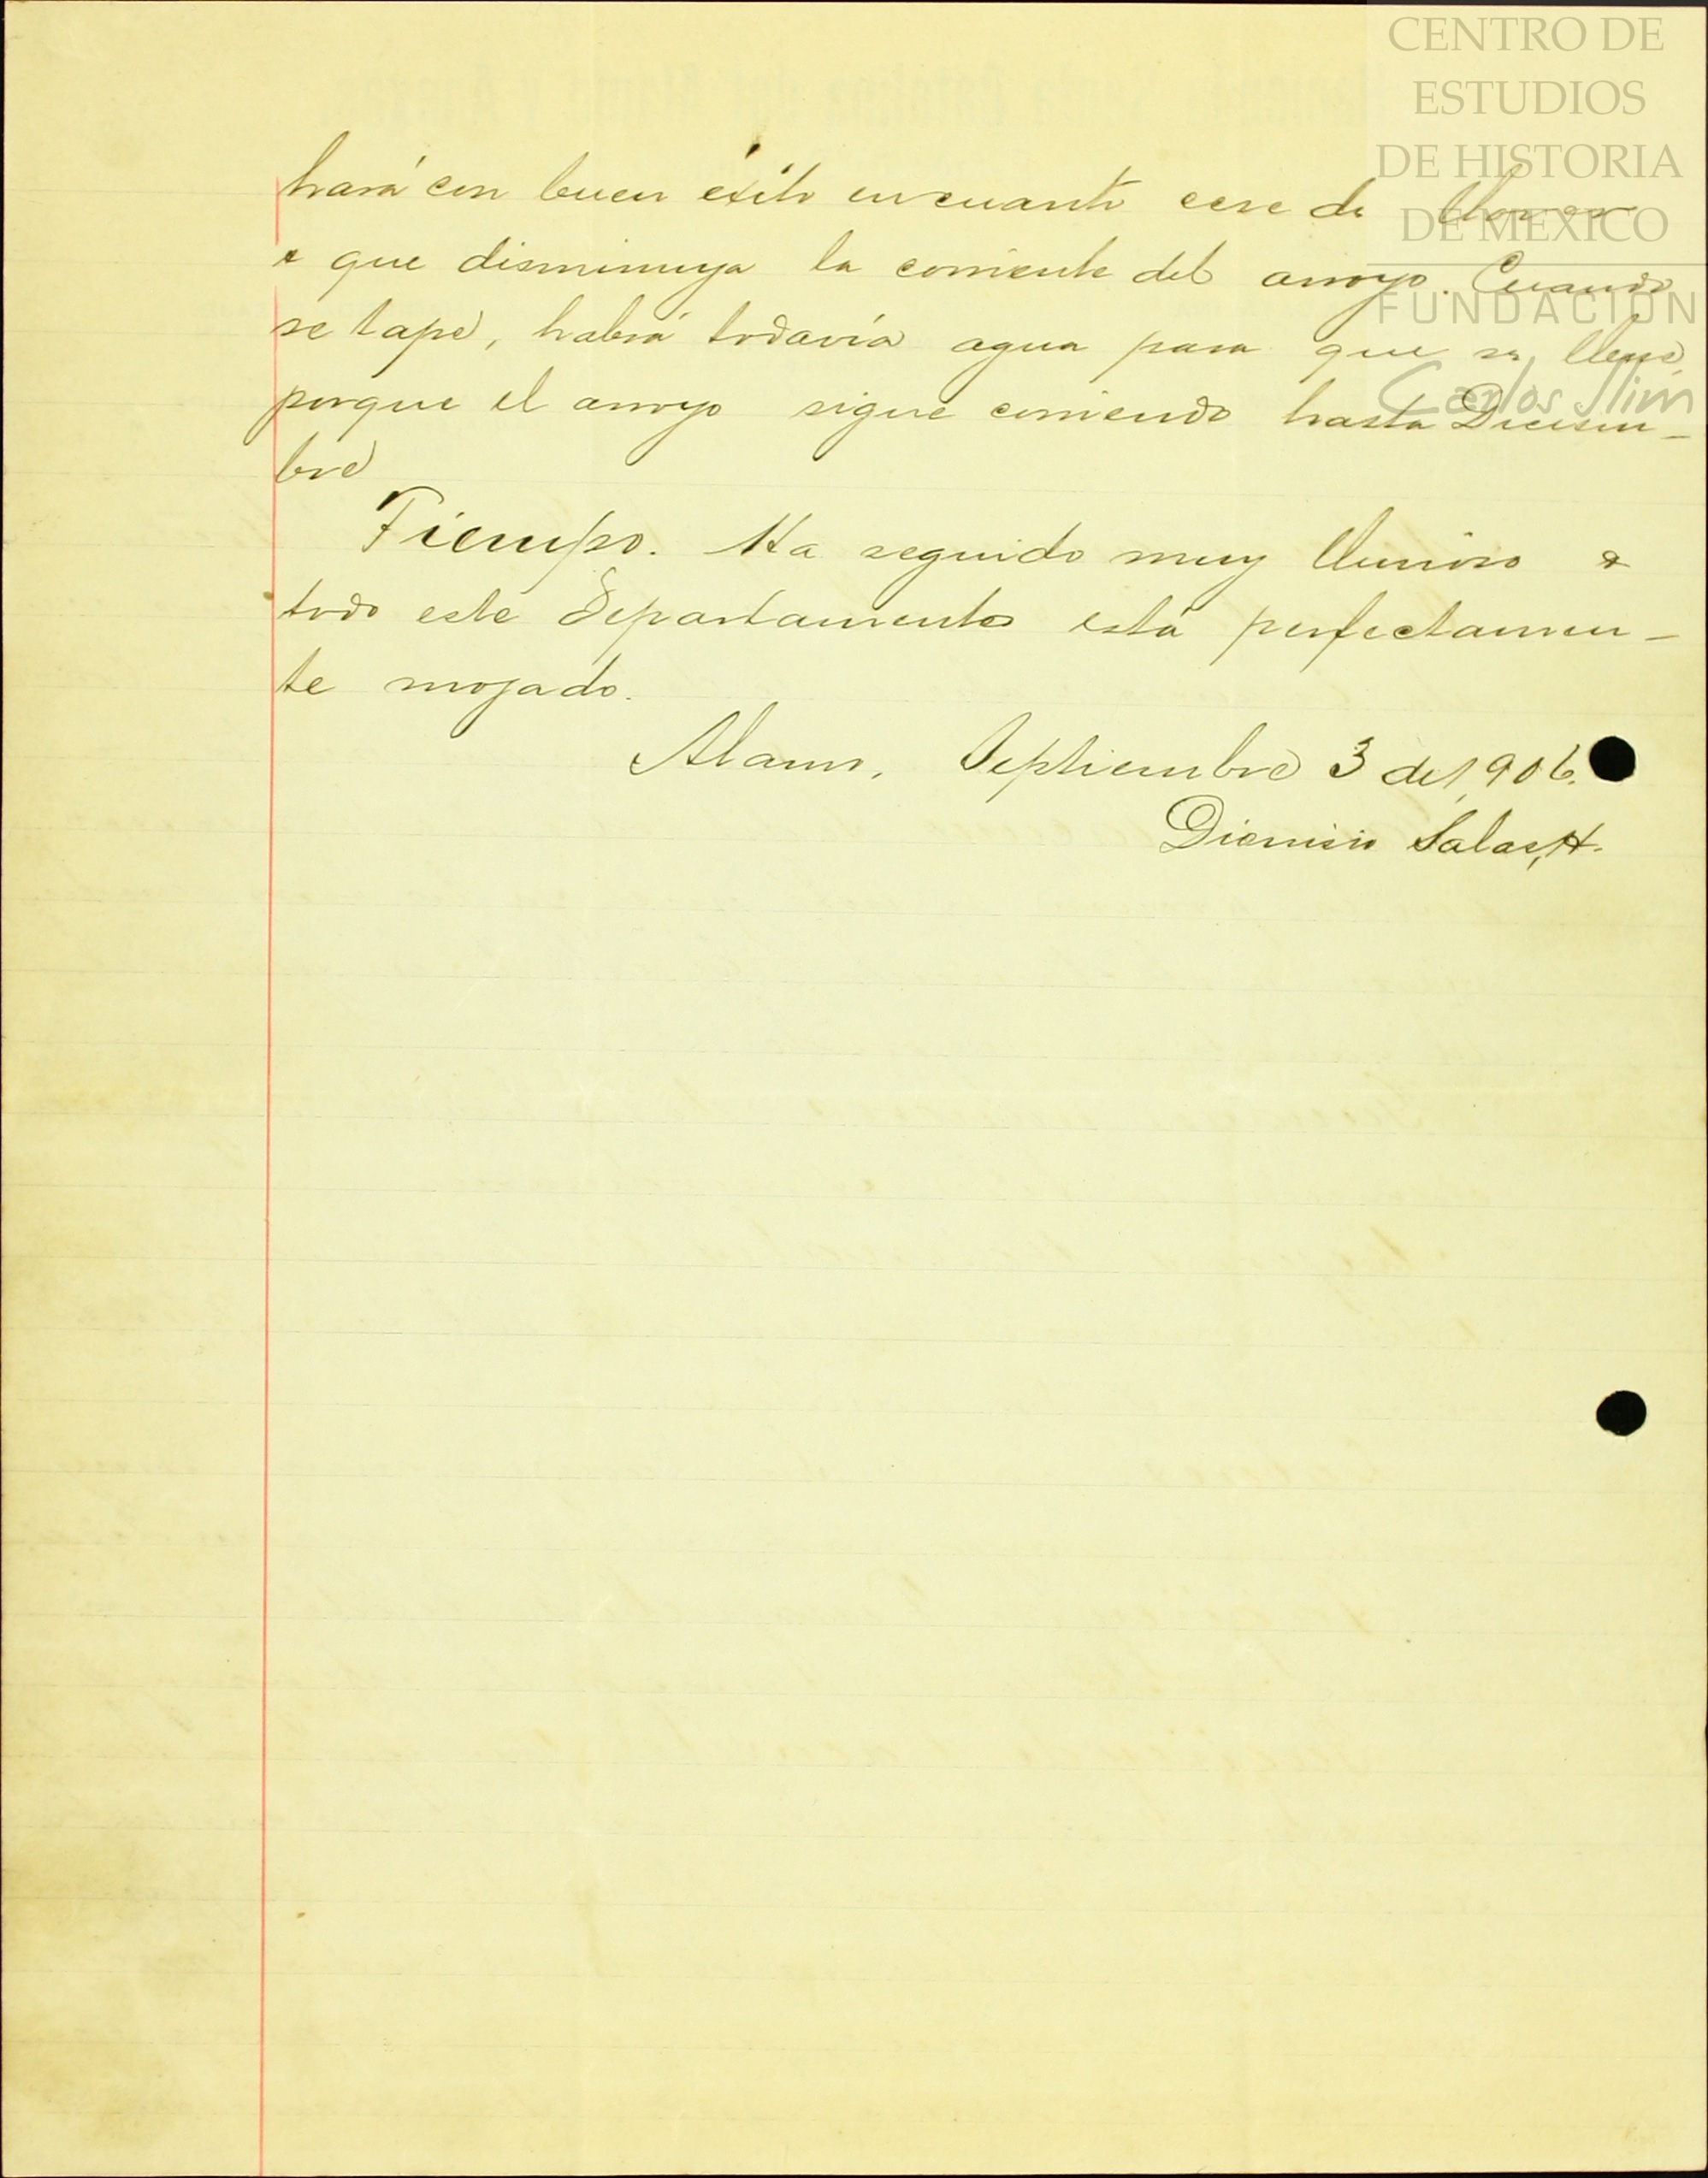 CENTRO DE
ESTUDIOS
DE HISTORIA
DE MEXICO
FUNDACION
Carlos Slim
hará con buen éxito en cuanto cese de llover
y que disminuya la corriente del arroyo. Cuando
se tape, habrá todavía agua para que se llene,
porque el arroyo sigue corriendo hasta Diciem-
bre
Tiempo. Ha seguido muy lluvioso y
todo este Departamento está perfectamen-
te mojado.
Alamo, Septiembre 3 de 1,906.
Dionisio Salas, H.